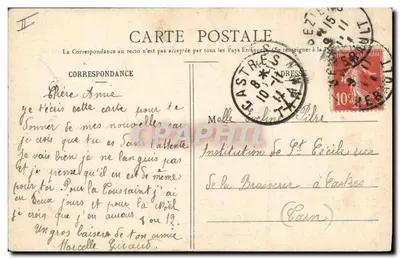 CARTE POSTALE
La Correspondance au recto n'est pas acceptée par tous les Pays Étrangers (Se renseigner à la
CORRESPONDANCE
ADRESSE
CASTRES
TARN
10
Chère Amie
je t'écris cette carte pour te
donner de mes nouvelles car je
crois que tu es dans l'attente
Je vais bien je ne languis pas
et je pense qu'il en est de même
pour toi. Pour la Toussaint j'ai
eu deux jours et pour la Noël
je crois que j'en aurais 8 ou 12.
Un gros baiser de ton amie
Marcelle Giraud
Melle
Institution de Ste Cécile rue
de la Brasserie à Castres
(Tarn)